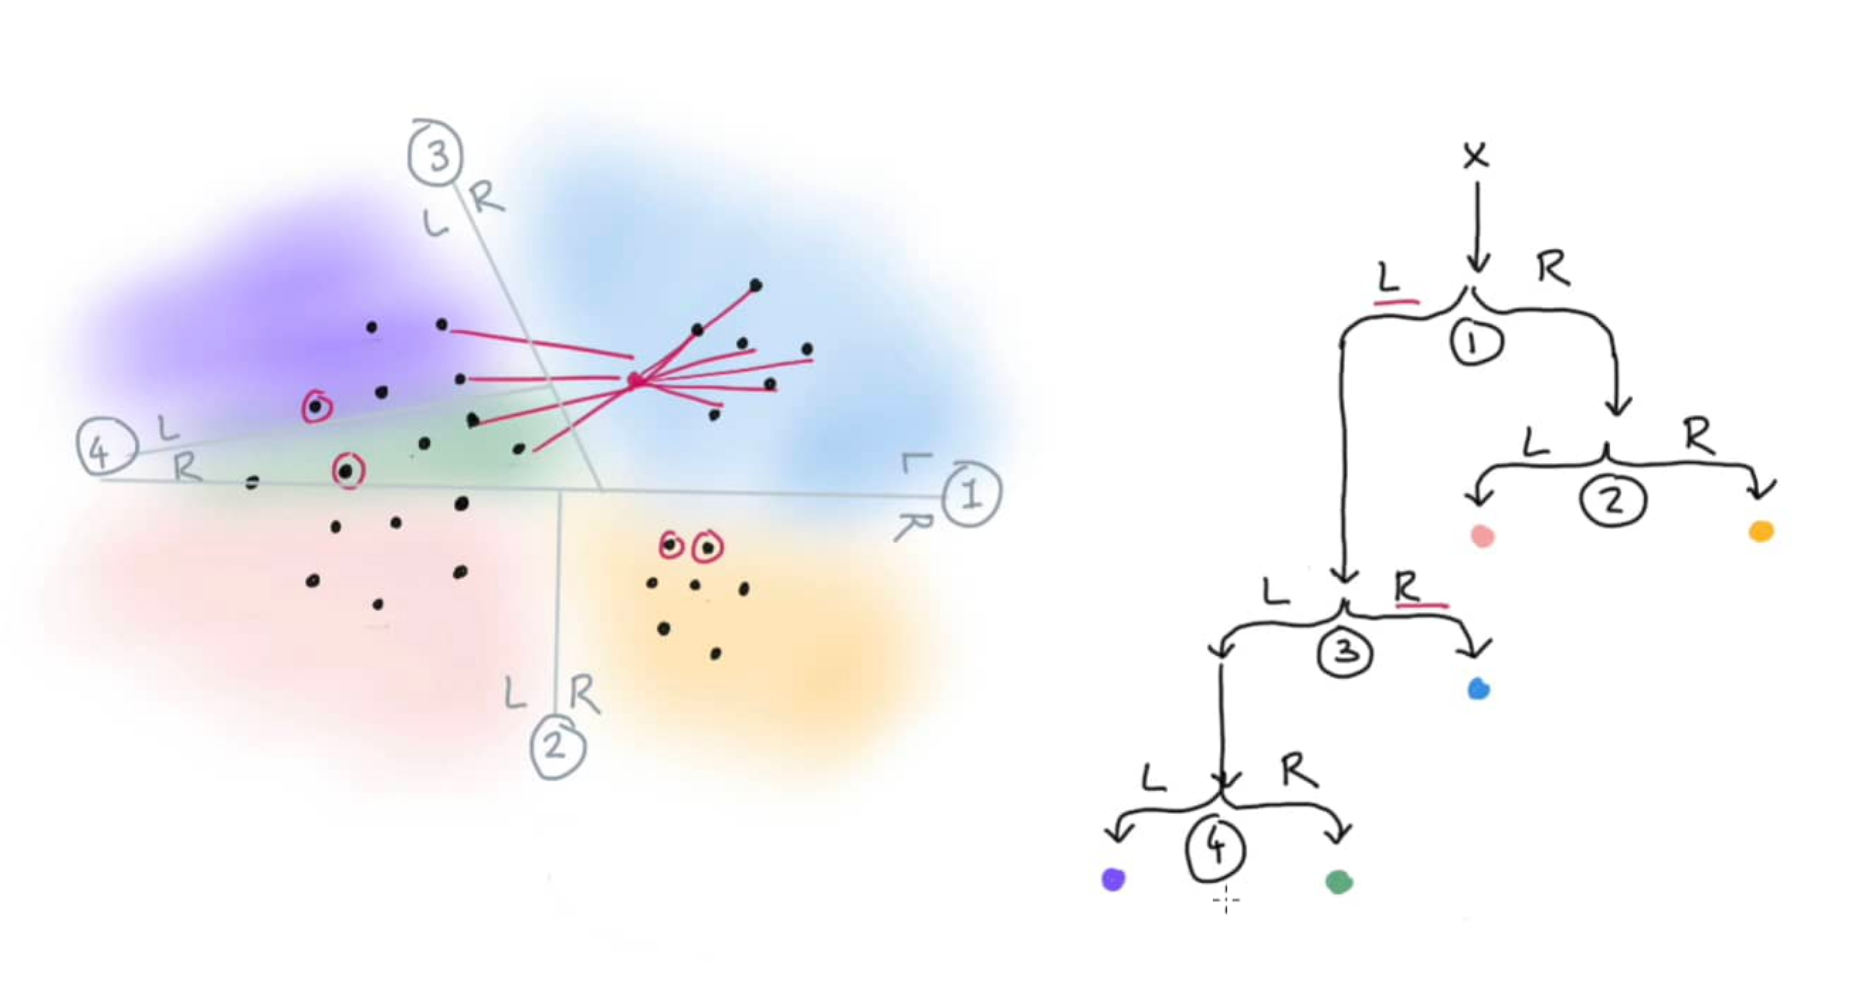 3
R
L
4
L
R
L
1
R
L R
2
X
L R
1
L R
2
L R
3
L R
4